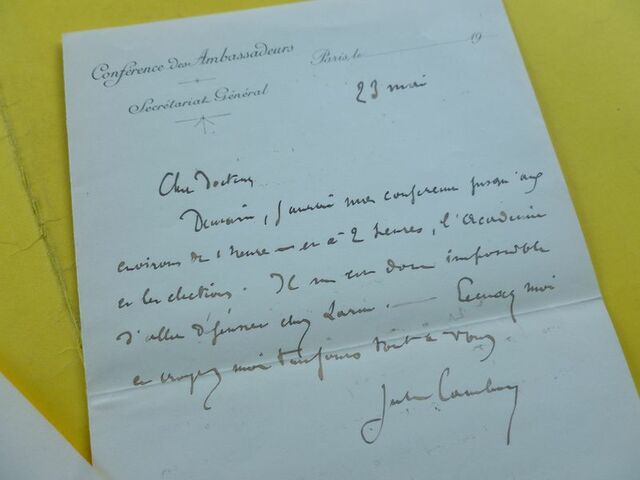 Conférence des Ambassadeurs
Secrétariat Général
Paris, le 19
23 mai
Cher Docteur
Demain, j'aurai une conférence jusqu'aux
environs de 1 heure – et à 2 heures, l'académie
et les élections. Il m'est donc impossible
d'aller déjeuner chez Larue. — Excusez moi
et croyez moi toujours tout à vous
Jules Cambon